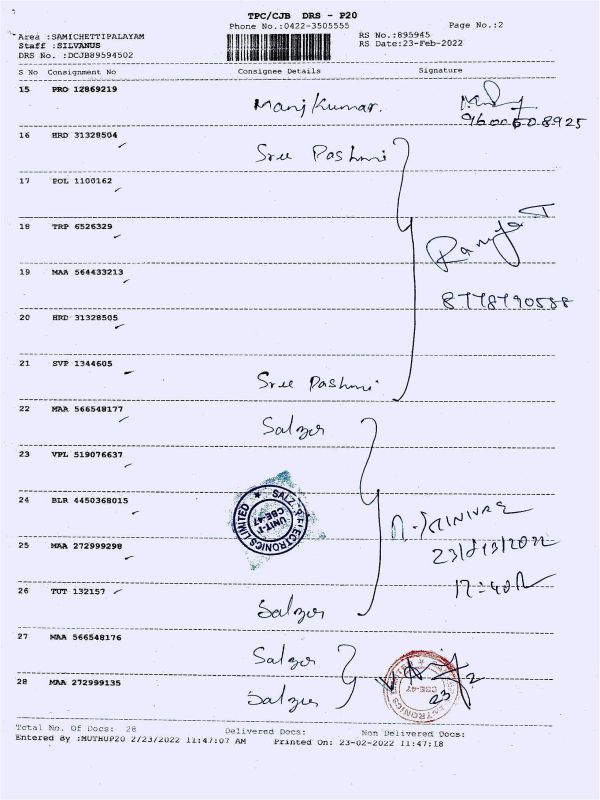 TPC/CJB DRS - P20
Phone No.:0422-3505555
Page No.:2
Area :SAMICHETTIPALAYAM
RS No.:895945
Staff :SILVANUS
RS Date:23-Feb-2022
DRS No. :DCJB89594502
S No Consignment No Consignee Details Signature
15 PRO 12869219 Manjkumar.
9600608925
16 HRD 31328504 Sree Dashmi
17 POL 1100162
18 TRP 6526329
Ramya T
19 MAA 564433213
8778790588
20 HRD 31328505
21 SVP 1344605 Sree Dashmi
22 MAA 566548177 Salzer
23 VPL 519076637
24 BLR 4450368015
SALZER ELECTRONICS LIMITED
UNIT-
CBE-47
25 MAA 272999298
26 TUT 132157 Salzer
27 MAA 566548176 Salzer
28 MAA 272999135 Salzer
CBE-47
23
Total No. Of Docs: 28 Delivered Docs: Non Delivered Docs:
Entered By :MUTHUP20 2/23/2022 11:47:07 AM Printed On: 23-02-2022 11:47:18